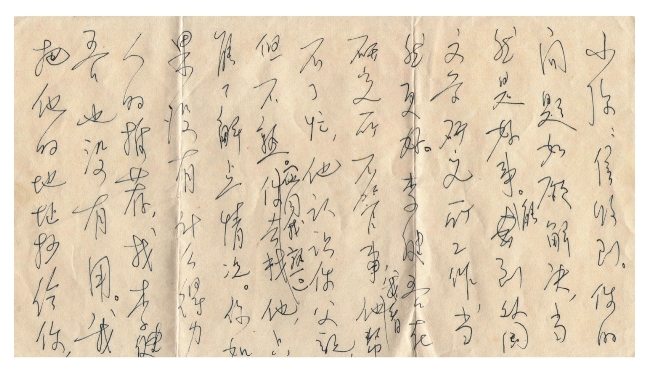 信收到。你的
问题如愿解决，当
然是好事。能到外国
文学研究所工作，当
然更好。李健吾在
研究所不管事，他帮
不了忙，他认识你父亲，
但不熟。你去找他，只
能了解点情况。你如
果没有什么得力
人的推荐，找李健
吾也没有用。我
把他的地址抄给你，